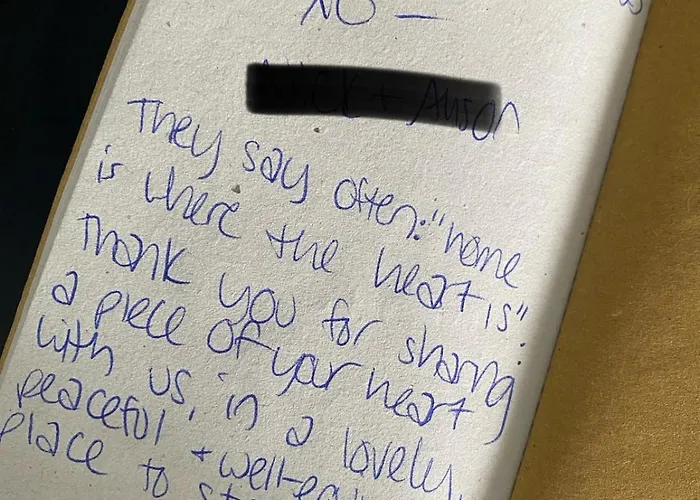 XO —
They say often: "home
is where the heart is"
Thank you for sharing
a piece of your heart
with us, in a lovely,
peaceful +
place to